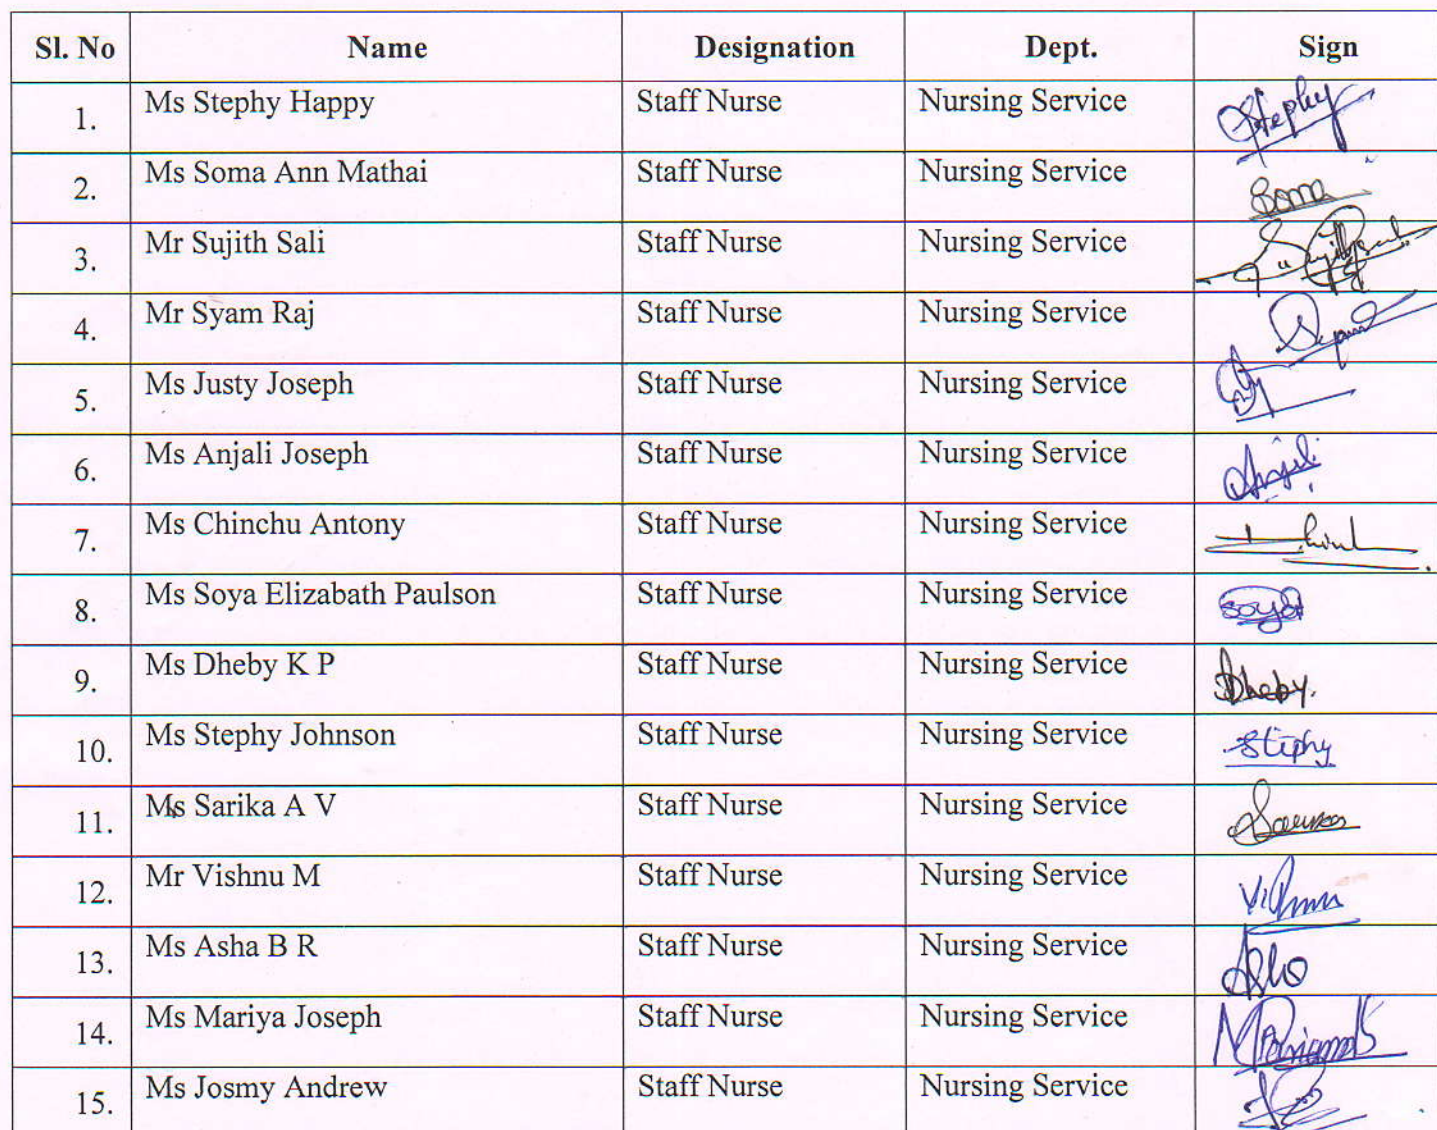 Sl. No Name Designation Dept. Sign
1. Ms Stephy Happy Staff Nurse Nursing Service Stephy
2. Ms Soma Ann Mathai Staff Nurse Nursing Service Soma
3. Mr Sujith Sali Staff Nurse Nursing Service
4. Mr Syam Raj Staff Nurse Nursing Service
5. Ms Justy Joseph Staff Nurse Nursing Service
6. Ms Anjali Joseph Staff Nurse Nursing Service Anjali
7. Ms Chinchu Antony Staff Nurse Nursing Service
8. Ms Soya Elizabath Paulson Staff Nurse Nursing Service Soya
9. Ms Dheby K P Staff Nurse Nursing Service Dheby.
10. Ms Stephy Johnson Staff Nurse Nursing Service Stephy
11. Ms Sarika A V Staff Nurse Nursing Service
12. Mr Vishnu M Staff Nurse Nursing Service
13. Ms Asha B R Staff Nurse Nursing Service Asha
14. Ms Mariya Joseph Staff Nurse Nursing Service
15. Ms Josmy Andrew Staff Nurse Nursing Service